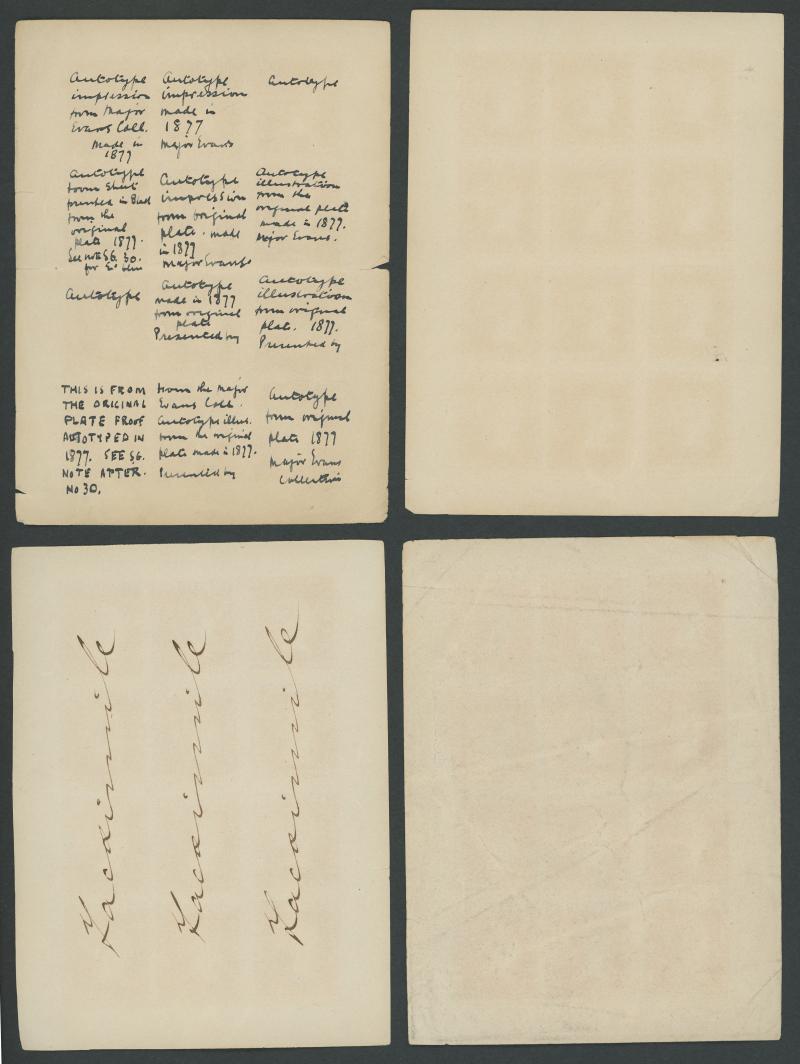 Autotype
impression
from Major
Evans Coll.
made in
1877
Autotype
impression
made in
1877
Major Evans
Autotype
Autotype
from Sheet
printed in Black
from the
original
plate 1877.
See note SG. 30.
for
Autotype
impression
from original
plate. made
in 1877
Major Evans
Autotype
illustration
from the
original plate
made in 1877.
Major Evans.
Autotype
Autotype
made in 1877
from original
plate
Presented by
Autotype
illustration
from original
plate. 1877.
Presented by
THIS IS FROM
THE ORIGINAL
PLATE PROOF
AUTOTYPED IN
1877. SEE SG.
NOTE AFTER.
No 30.
from the Major
Evans Coll.
Autotype illus.
from the original
plate made in 1877.
Presented by
Autotype
from original
plate 1877
Major Evans
Collection
Facsimile
Facsimile
Facsimile